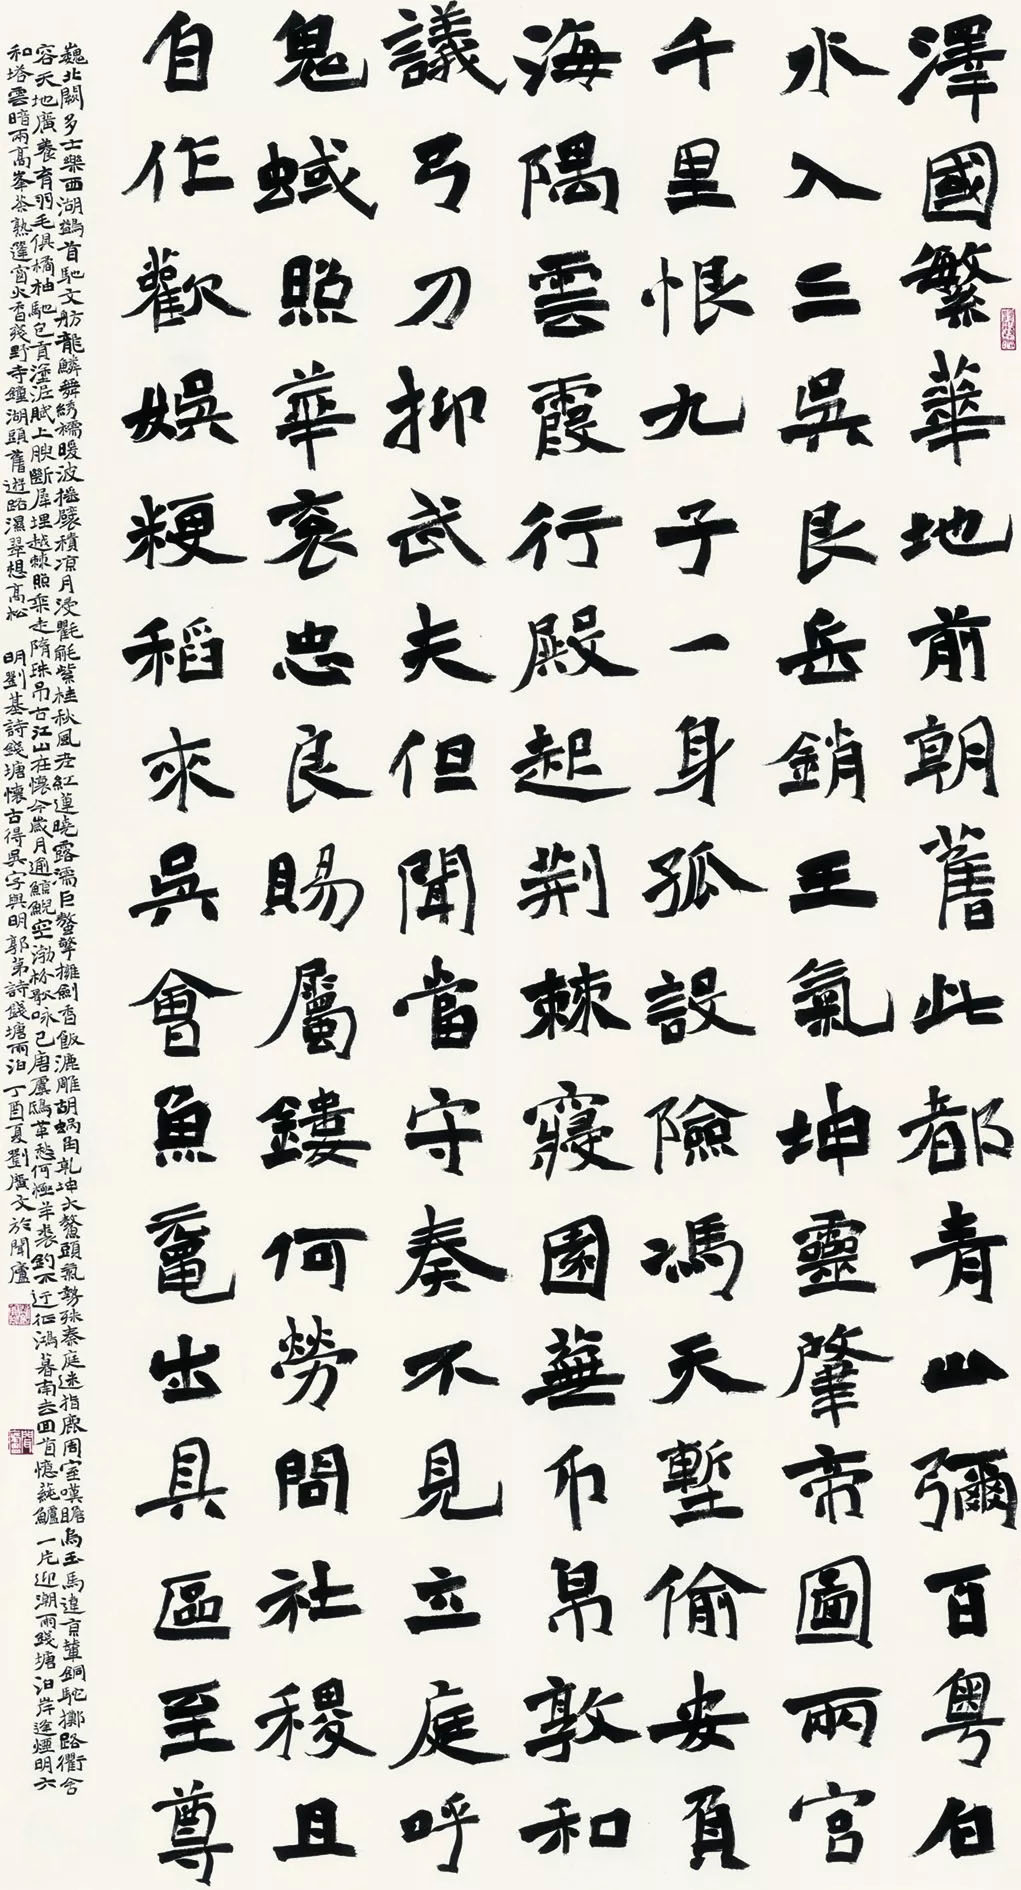 澤國繁華地前朝舊此都青山彌百粵白
水入三吳艮岳銷王氣坤靈肇帝圖兩宮
千里恨九子一身孤設險馮天塹偷安負
海隅雲霞行殿起荆棘寢園蕪币帛敦和
議弓刀抑武夫但聞當守奏不見立庭呼
鬼蜮照華衮忠良賜屬鏤何勞問社稷且
自作歡娛粳稻來吳會魚黿出具區至尊
巍北闕多士樂西湖鷁首馳文舫龍鱗舞綉襦暖波摇襞積凉月浸氍毹紫桂秋風老紅蓮曉露濡巨螯擎擁劍香飯漉雕胡蝸角乾坤大鰲頭氣勢殊秦庭迷指鹿周室嘆瞻烏玉馬違京輦銅駝擲路衢含
容天地廣養育羽毛俱橘柚馳包貢塗泥賦上腴斷犀埋越棘照乘走隋珠吊古江山在懷今歲月逾鯨鯢空渤歌咏已唐虞鴟革愁何極羊裘釣不迂征鴻暮南去回首憶蓴鱸 一片迎潮雨錢塘泊岸逢煙明六
和塔雲暗兩高峯茶熟篷窗火香殘野寺鐘湖頭舊遊路濕翠想高松 明劉基詩錢塘懷古得吳字與明郭第詩錢塘雨泊 丁酉夏劉廣文於聞廬